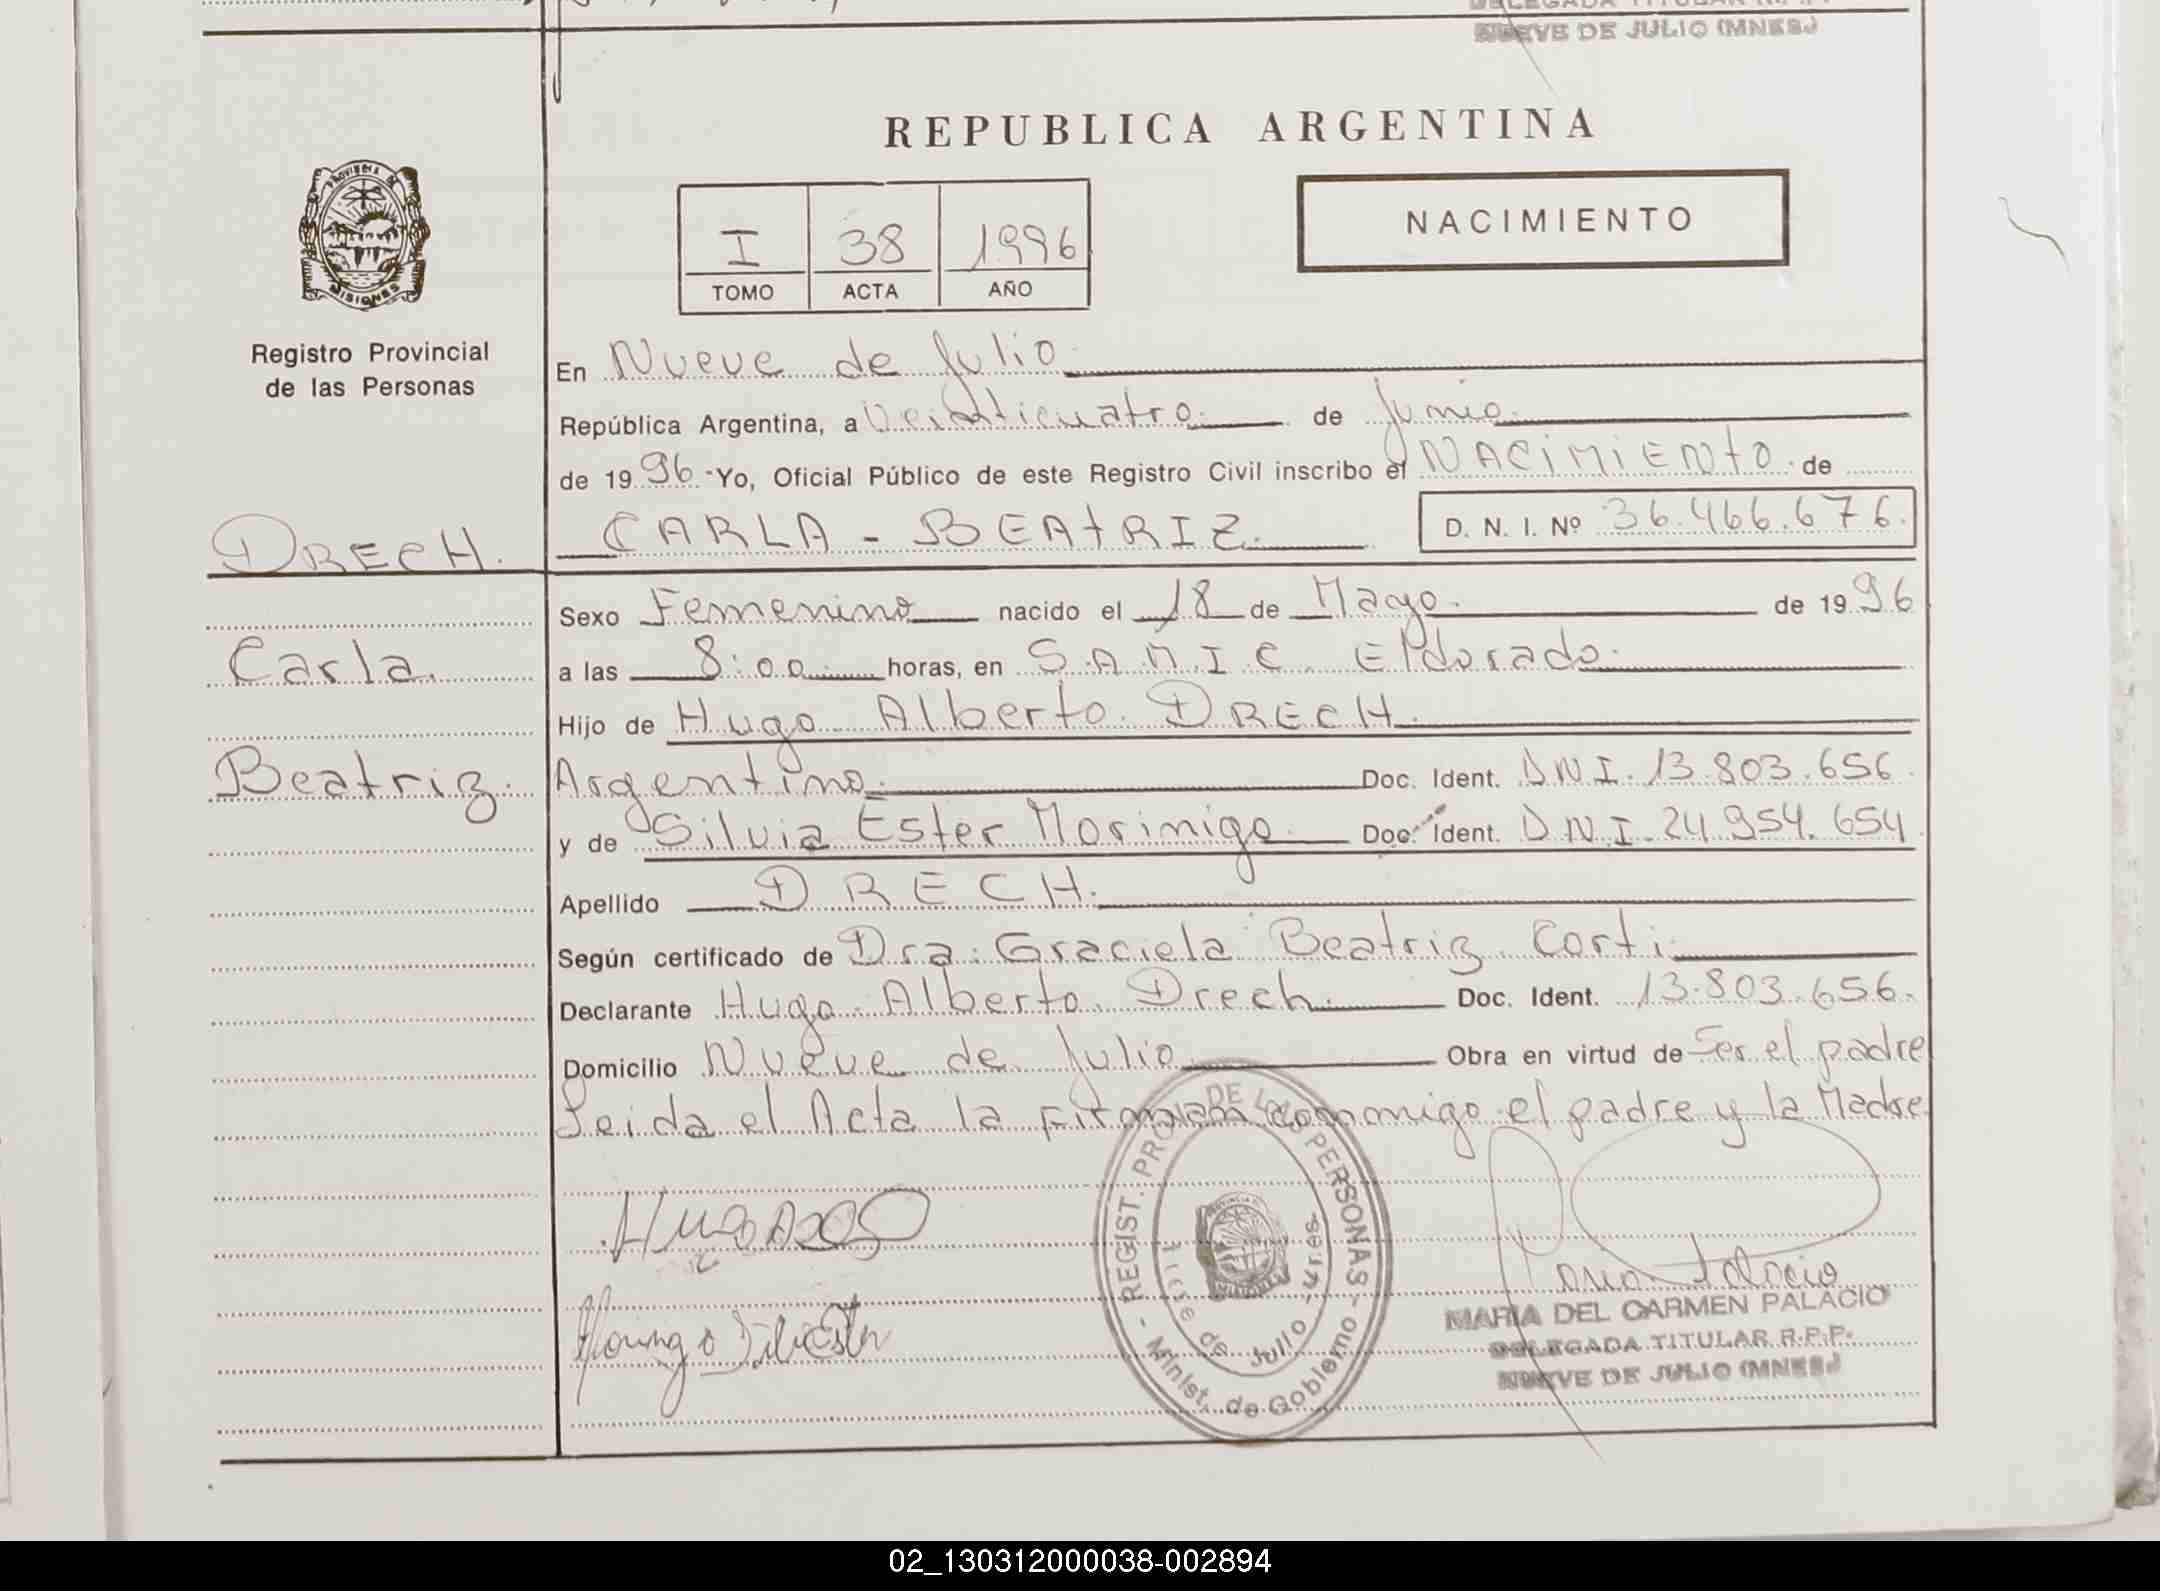 NUEVE DE JULIO (MNES.)
REPUBLICA ARGENTINA
PROVINCIA DE
MISIONES
I 38 1996
TOMO ACTA AÑO
NACIMIENTO
Registro Provincial
de las Personas
En Nueve de Julio
República Argentina, a Veinticuatro. de Junio.
de 1996 - Yo, Oficial Público de este Registro Civil inscribo el NACIMIENTO. de
DRECH. CARLA - BEATRIZ. D. N. I. Nº 36.466.676.
Sexo Femenino nacido el 18 de Mayo. de 1996
Carla. a las 8:00 horas, en S.A.M.I.C. Eldorado.
Hijo de Hugo Alberto DRECH.
Beatriz. Argentino. Doc. Ident. D.N.I. 13.803.656
y de Silvia Ester Morinigo Doc. Ident. D.N.I. 24.954.654
Apellido DRECH.
Según certificado de Dra. Graciela Beatriz Corti.
Declarante Hugo Alberto Drech. Doc. Ident. 13.803.656.
Domicilio Nueve de Julio Obra en virtud de Ser el padre
Leida el Acta la firman conmigo el padre y la Madre
REGIST. PROV. DE LAS PERSONAS - Minist. de Gobierno -
de Julio
MARIA DEL CARMEN PALACIO
DELEGADA TITULAR R.P.P.
NUEVE DE JULIO (MNES.)
02_130312000038-002894